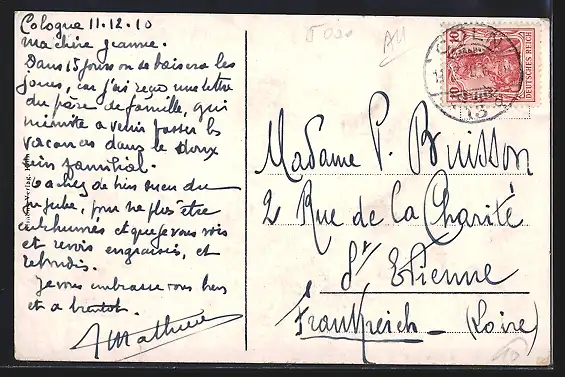 Cologne 11.12.10
ma chère Jeanne.
Dans 15 jours on se baisera les
joues, car j'ai reçu une lettre
du père de famille, qui
m'invite à venir passer les
vacances dans le doux
sein familial.
Tachez de bien sucer du
jujube, pour ne plus être
enrhumées et que je vous vois
et revois engraissées, et
rebondis.
Je vous embrasse tous bien
et à bientôt.
Mathieu
CÖLN
13
10
DEUTSCHES REICH
Madame P. Buisson
2 Rue de la Charité
St Etienne
Frankreich (Loire)